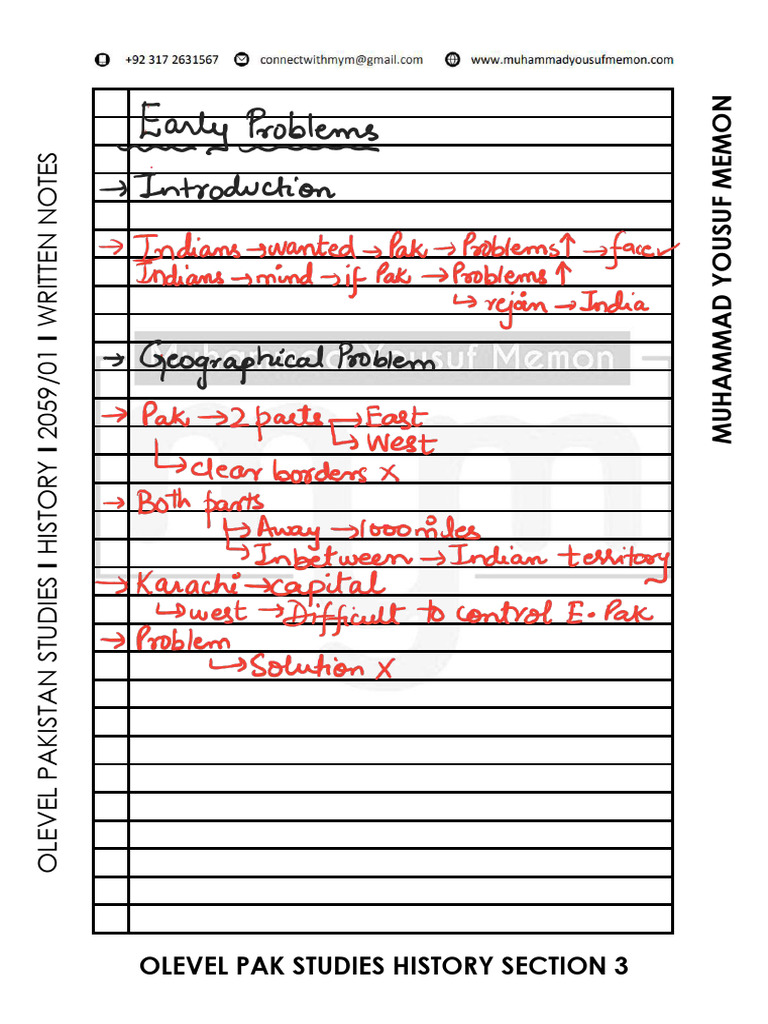 +92 317 2631567 connectwithmym@gmail.com www.muhammadyousufmemon.com
Early Problems
→ Introduction
→ Indians → wanted → Pak → Problems ↑ → face ✓
Indians → mind → if Pak → Problems ↑
↳ rejoin → India
Muhammad Yousuf Memon
→ Geographical Problem
→ Pak → 2 parts → East
↳ West
↳ clear borders x
→ Both parts
↳ Away → 1000 miles
↳ Inbetween → Indian territory
→ Karachi → capital
↳ west → Difficult to control E. Pak
→ Problem
↳ Solution x
mym
OLEVEL PAKISTAN STUDIES I HISTORY I 2059/01 I WRITTEN NOTES
MUHAMMAD YOUSUF MEMON
OLEVEL PAK STUDIES HISTORY SECTION 3